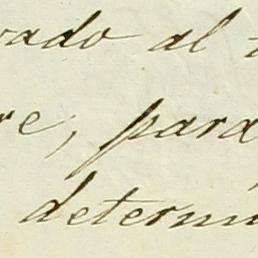 vado al
re, para
determi